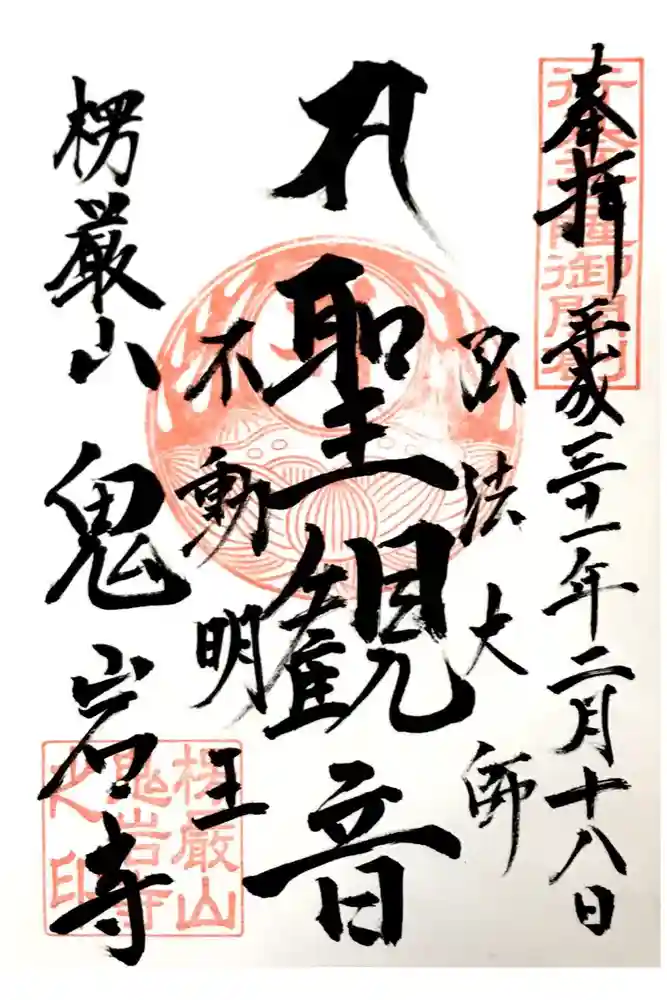 奉拝 平成三十一年二月十八日
行基菩薩御開創
弘法大師
聖観音
不動明王
楞厳山 鬼岩寺
楞厳山
鬼岩寺
之印